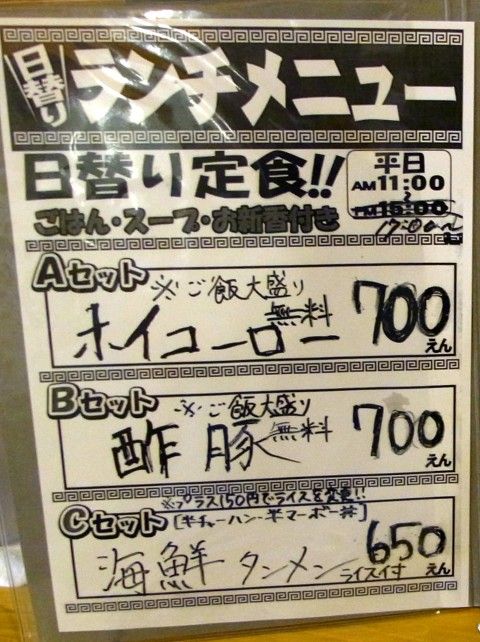 日替り
ランチメニュー
日替り定食!!
平日
AM11:00
PM15:00
17:00
ごはん・スープ・お新香付き
Aセット
※ご飯大盛り
無料
ホイコーロー
700
えん
Bセット
※ご飯大盛り
無料
酢豚
700
えん
※プラス150円でライスを変更!!
Cセット
[半チャーハン・半マーボー丼]
海鮮タンメン
ライス付
650
えん